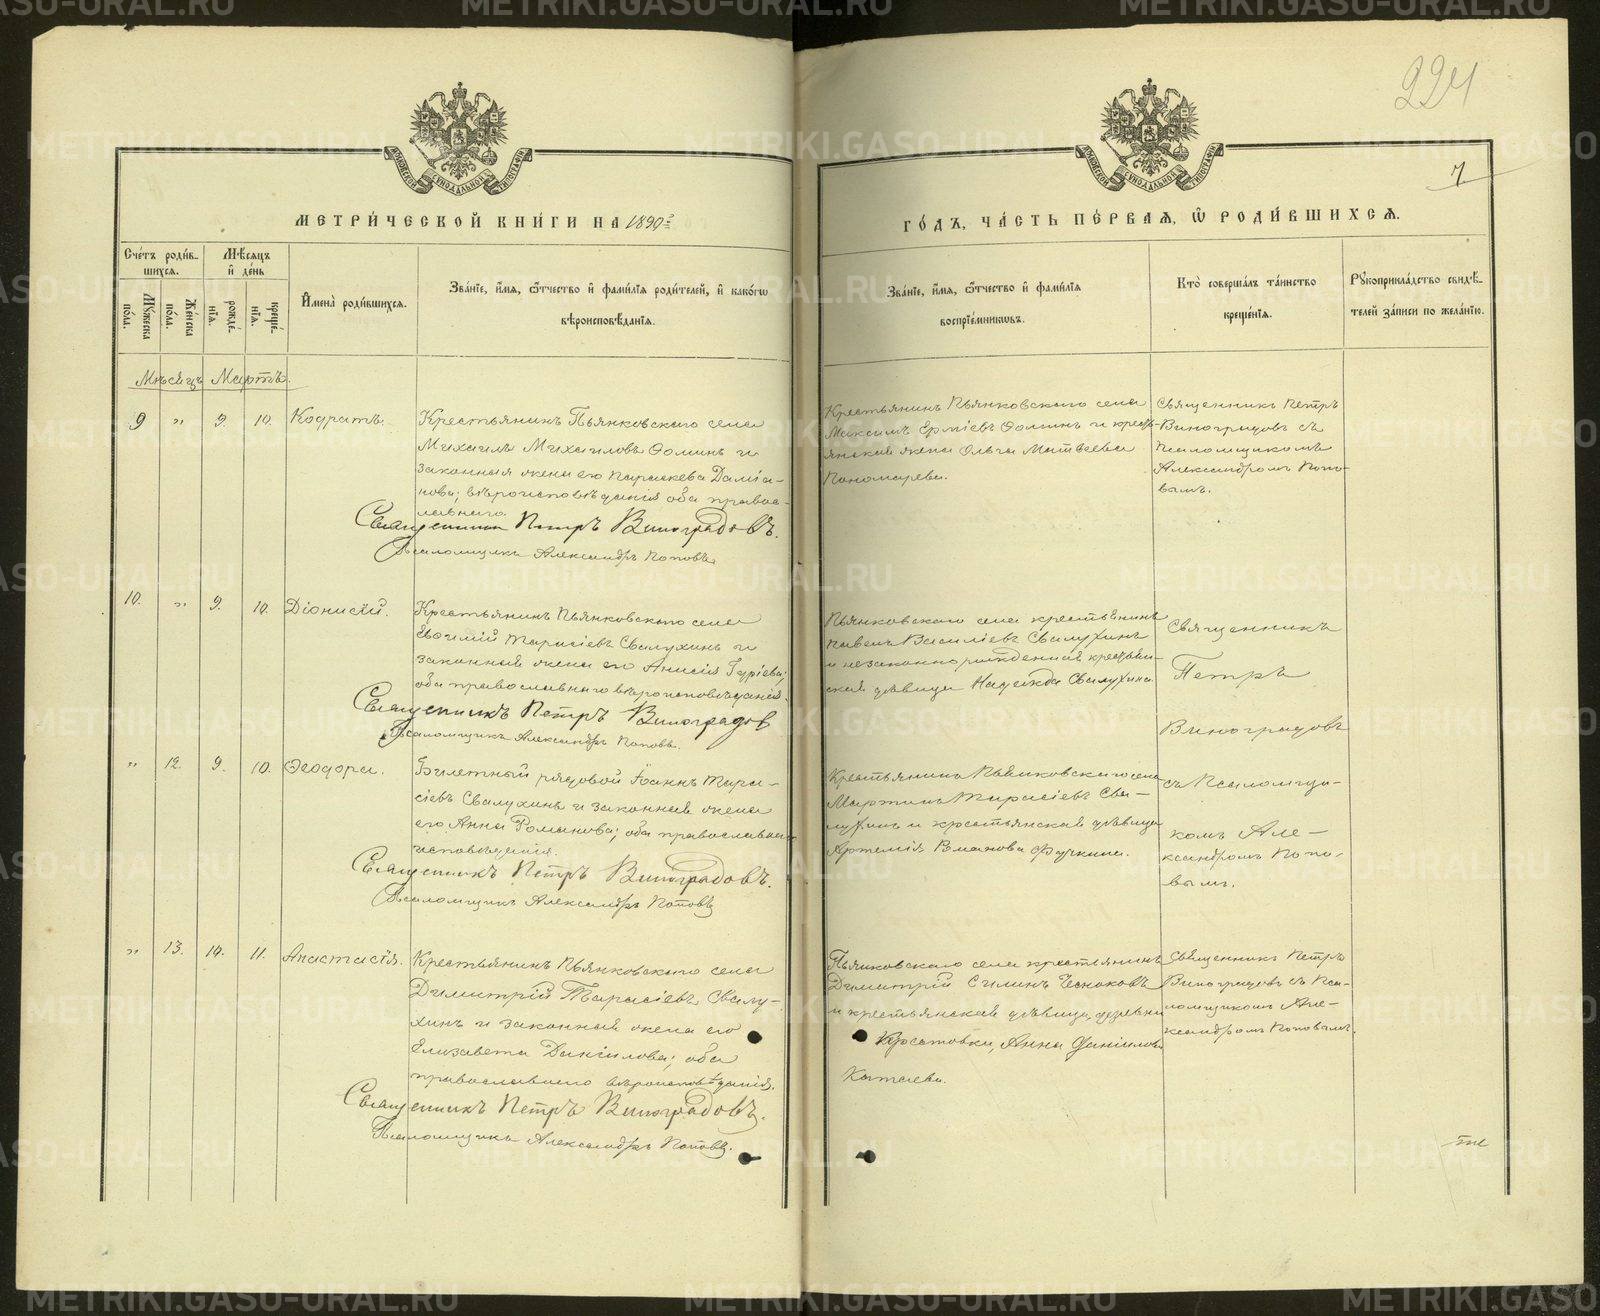 224
7
МОСКОВСКОЙ СѴНОДАЛЬНОЙ ТИПОГРАФІИ
МОСКОВСКОЙ СѴНОДАЛЬНОЙ ТИПОГРАФІИ
МЕТРИ́ЧЕСКОЙ КНИ́ГИ НА 1890 й
ГО́ДЪ, ЧА́СТЬ ПЕ́РВАѦ, Ѡ҆ РОДИ́ВШИХСѦ.
Сче́тъ роди́в-
шихся.
Мѣ́сяцъ
и҆ де́нь
Му́жеска
по́ла.
Же́нска
по́ла.
рожде́-
нїѧ.
креще́-
нїѧ.
И҆мена̀ роди́вшихся.
Зва́нїе, и҆́мѧ, ѻ҆́тчество и҆ фами́лїѧ роди́телей, и҆ како́гѡ
вѣроисповѣ́данїѧ.
Зва́нїе, и҆́мѧ, ѻ҆́тчество и҆ фами́лїѧ
воспрїе́мникѡвъ.
Кто̀ соверша́лъ та́инство
креще́нїѧ.
Рꙋкоприкла́дство свидѣ́-
телей за́писи по жела́нїю.
Мѣсяцъ Мартъ.
9 " 9. 10. Кодратъ.
Крестьянинъ Пьянковскаго села
Михаилъ Михаиловъ Ѳоминъ и
законная жена его Параскева Даміа-
нова; вѣроисповѣданія оба правос-
лавнаго.
Священникъ Петръ Виноградовъ.
Псаломщикъ Александръ Поповъ
Крестьянинъ Пьянковскаго села
Максимъ Ѳоминъ и кресть-
янская жена Ольга Матвѣева
Пономарева.
Священникъ Петръ
Виноградовъ съ
псаломщикомъ
Александромъ Попо-
вымъ.
10. " 9. 10. Діонисій.
Крестьянинъ Пьянковскаго села
Евѳимій Тарасіевъ Свалухинъ и
законная жена его Анисія Гуріева;
оба православнаго вѣроисповѣданія.
Священникъ Петръ Виноградов
Псаломщикъ Александръ Поповъ.
Пьянковскаго села крестьянинъ
Павелъ Василіевъ Свалухинъ
и незаконнорожденная крестьян-
ская дѣвица Надежда Свалухина
Священникъ
Петръ
Виноградовъ
" 12. 9. 10. Ѳеодора.
Билетный рядовой Іоаннъ Тара-
сіевъ Свалухинъ и законная жена
его Анна Романова; оба православнаго
исповѣданія.
Священникъ Петръ Виноградовъ.
Псаломщикъ Александръ Поповъ
Крестьянинъ Пьянковскаго села
Мартинъ Тарасіевъ Сва-
лухинъ и крестьянская дѣвица
Артемія
съ Псаломщи-
комъ Але-
ксандромъ Попо-
вымъ.
" 13. 10. 11. Анастасія.
Крестьянинъ Пьянковскаго села
Димитрій Тарасіевъ Свалу-
хинъ и законная жена его
Елизавета Даніилова; оба
православнаго вѣроисповѣданія.
Священникъ Петръ Виноградовъ.
Псаломщикъ Александръ Поповъ.
Пьянковскаго села крестьянинъ
Димитрій Силинъ Чесноковъ
и крестьянская дѣвица, деревни
Анна Даніилова
Катаева.
Священникъ Петръ
Виноградовъ съ Пса-
ломщикомъ Але-
ксандромъ Поповымъ.
METRIKI.GASO-URAL.RU